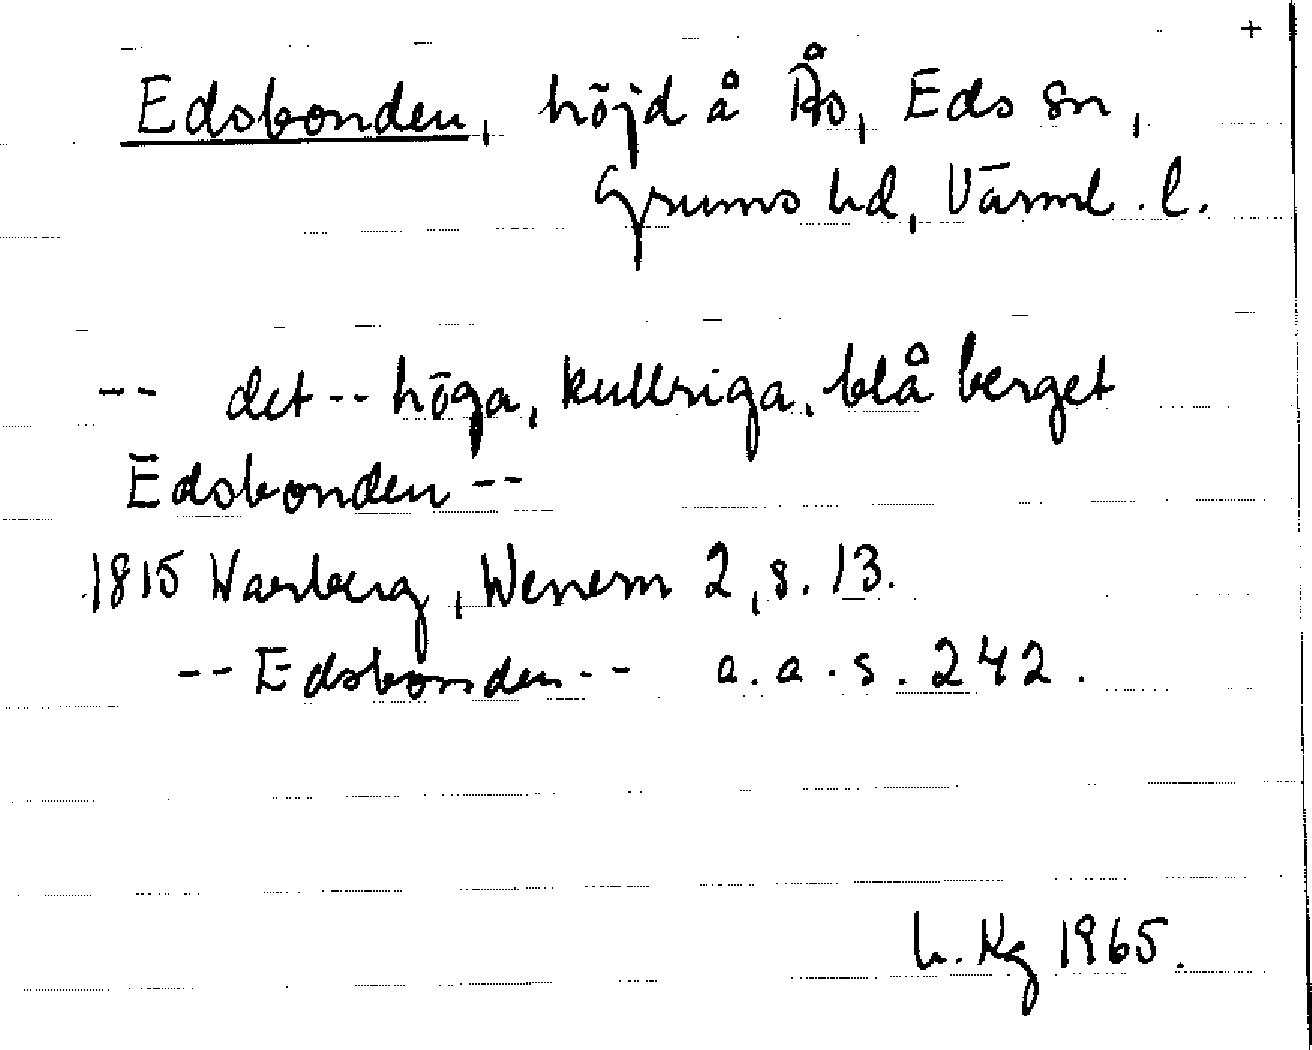 +
Edsbonden, höjd å Ås, Eds sn,
Grums hd, Värml. l.
-- det -- höga, kullriga, blå berget
Edsbonden --
1815 Warberg, Wenern 2, s. 13.
-- Edsbonden -- a.a. s. 242.
h. Kg 1965.